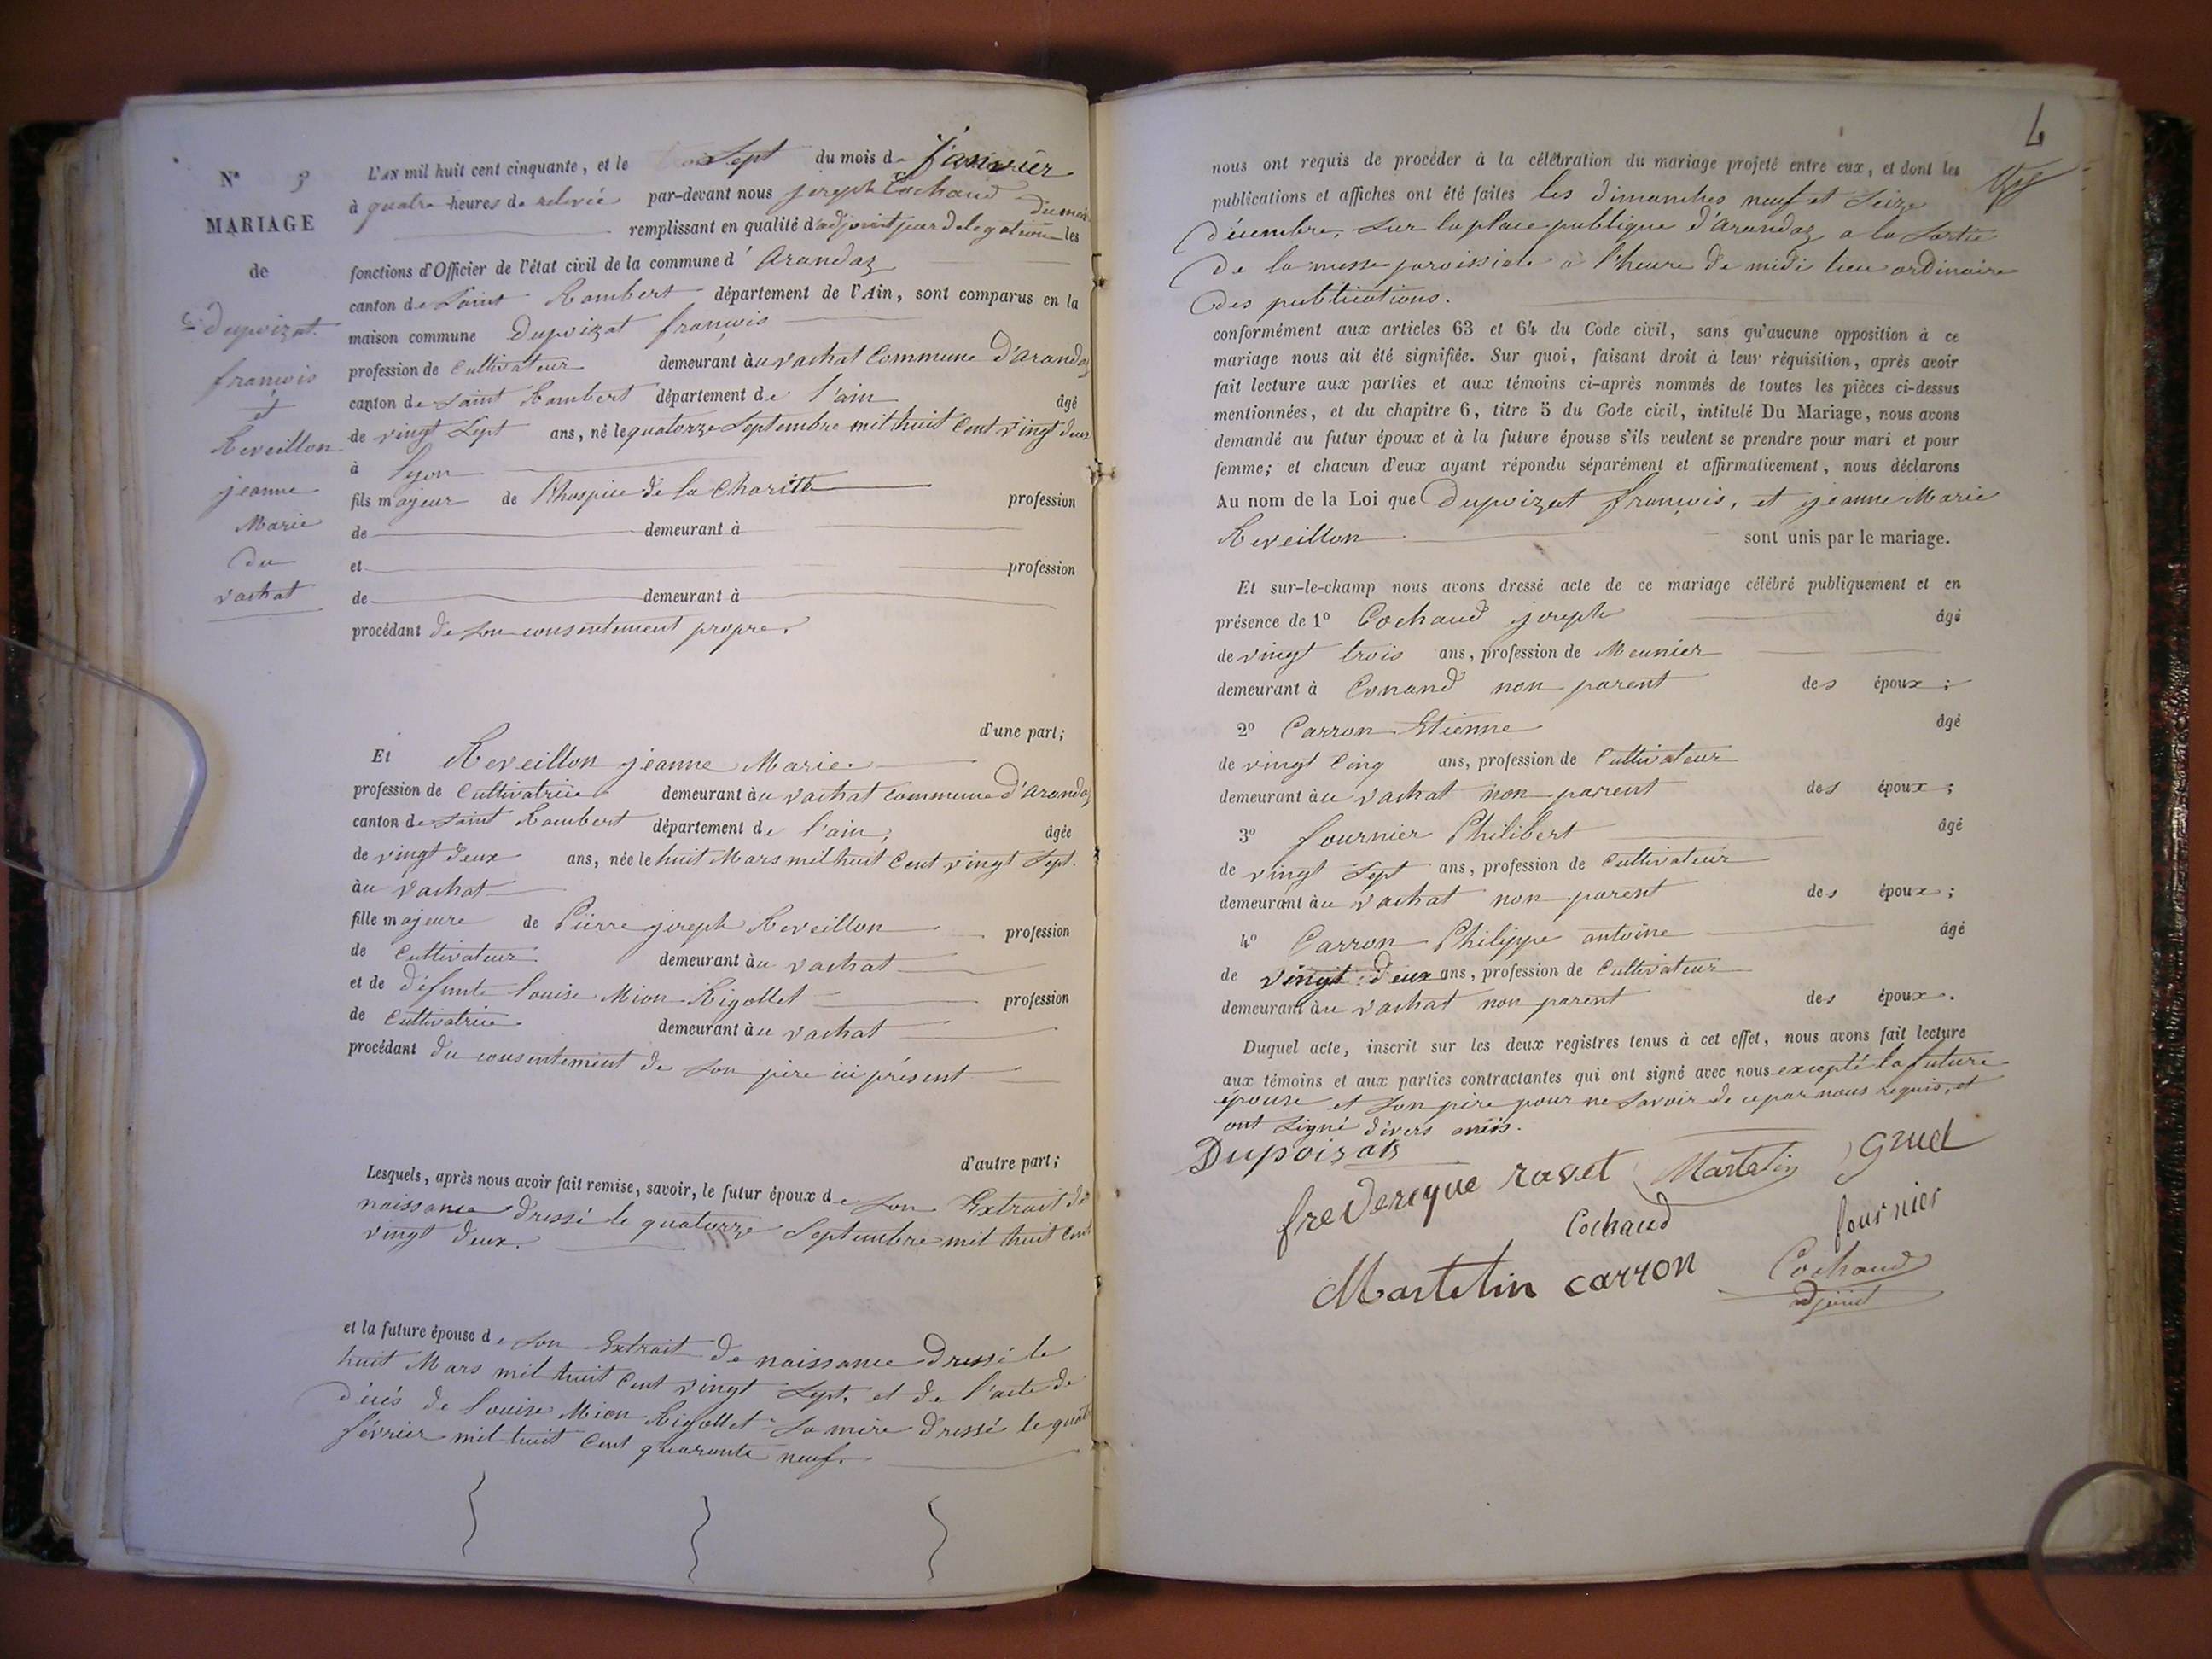 N° 3
MARIAGE
de
Dupoizat
françois
et
Reveillon
jeanne
Marie
du
vachat
L'AN mil huit cent cinquante, et le sept du mois de janvier
à quatre heures de relevée par-devant nous joseph Cochaud
remplissant en qualité d'adjoint par delegation du maire les
fonctions d'Officier de l'état civil de la commune d'Arandaz
canton de Saint Rambert département de l'Ain, sont comparus en la
maison commune Dupoizat françois
profession de Cultivateur demeurant àu vachat Commune D'Arandaz
canton de Saint Rambert département de l'ain âgé
de vingt Sept ans, né le quatorze Septembre mil huit Cent vingt deux
à Lyon
fils majeur de l'hospice de la Charité profession
de demeurant à
et profession
de demeurant à
procédant de son consentement propre.
d'une part;
Et Reveillon jeanne Marie
profession de Cultivatrice demeurant àu vachat commune d'Arandaz
canton de Saint Rambert département de l'ain, âgée
de vingt deux ans, née le huit Mars mil huit Cent vingt Sept.
àu vachat
fille majeure de Pierre joseph Reveillon profession
de Cultivateur demeurant àu vachat
et de défunte Louise Mion Rigollet profession
de Cultivatrice demeurant àu vachat
procédant du consentement de son père ici présent
d'autre part;
Lesquels, après nous avoir fait remise, savoir, le futur époux de son Extrait de
naissance Dressé le quatorze Septembre mil huit Cent
vingt deux.
et la future épouse de son Extrait de naissance Dressé le
huit Mars mil huit Cent vingt Sept, et de l'acte de
décès de Louise Mion Rigollet sa mère dressé le quatre
février mil huit Cent quarante neuf.
nous ont requis de procéder à la célébration du mariage projeté entre eux, et dont les
publications et affiches ont été faites les dimanches neuf et Seize
décembre, sur la place publique d'Arandaz a la sortie
De la messe paroissiale à l'heure de midi lieu ordinaire
des publications.
conformément aux articles 63 et 64 du Code civil, sans qu'aucune opposition à ce
mariage nous ait été signifiée. Sur quoi, faisant droit à leur réquisition, après avoir
fait lecture aux parties et aux témoins ci-après nommés de toutes les pièces ci-dessus
mentionnées, et du chapitre 6, titre 5 du Code civil, intitulé Du Mariage, nous avons
demandé au futur époux et à la future épouse s'ils veulent se prendre pour mari et pour
femme; et chacun d'eux ayant répondu séparément et affirmativement, nous déclarons
Au nom de la Loi que Dupoizat françois, et jeanne Marie
Reveillon sont unis par le mariage.
Et sur-le-champ nous avons dressé acte de ce mariage célébré publiquement et en
présence de 1° Cochaud joseph âgé
de vingt trois ans, profession de Meunier
demeurant à Conand non parent des époux;
2° Carron Etienne âgé
de vingt Cinq ans, profession de Cultivateur
demeurant àu vachat non parent des époux;
3° fournier Philibert âgé
de vingt Sept ans, profession de Cultivateur
demeurant àu vachat non parent des époux;
4° Carron Philippe antoine âgé
de vingt deux ans, profession de Cultivateur
demeurant àu vachat non parent des époux.
Duquel acte, inscrit sur les deux registres tenus à cet effet, nous avons fait lecture
aux témoins et aux parties contractantes qui ont signé avec nous excepté la future
épouse et son père pour ne savoir de ce par nous requis, et
ont signé divers amis.
Dupoisat
frederique ravet Martelin gruel
Cochaud fournier
Martelin carron Cochaud
adjoint